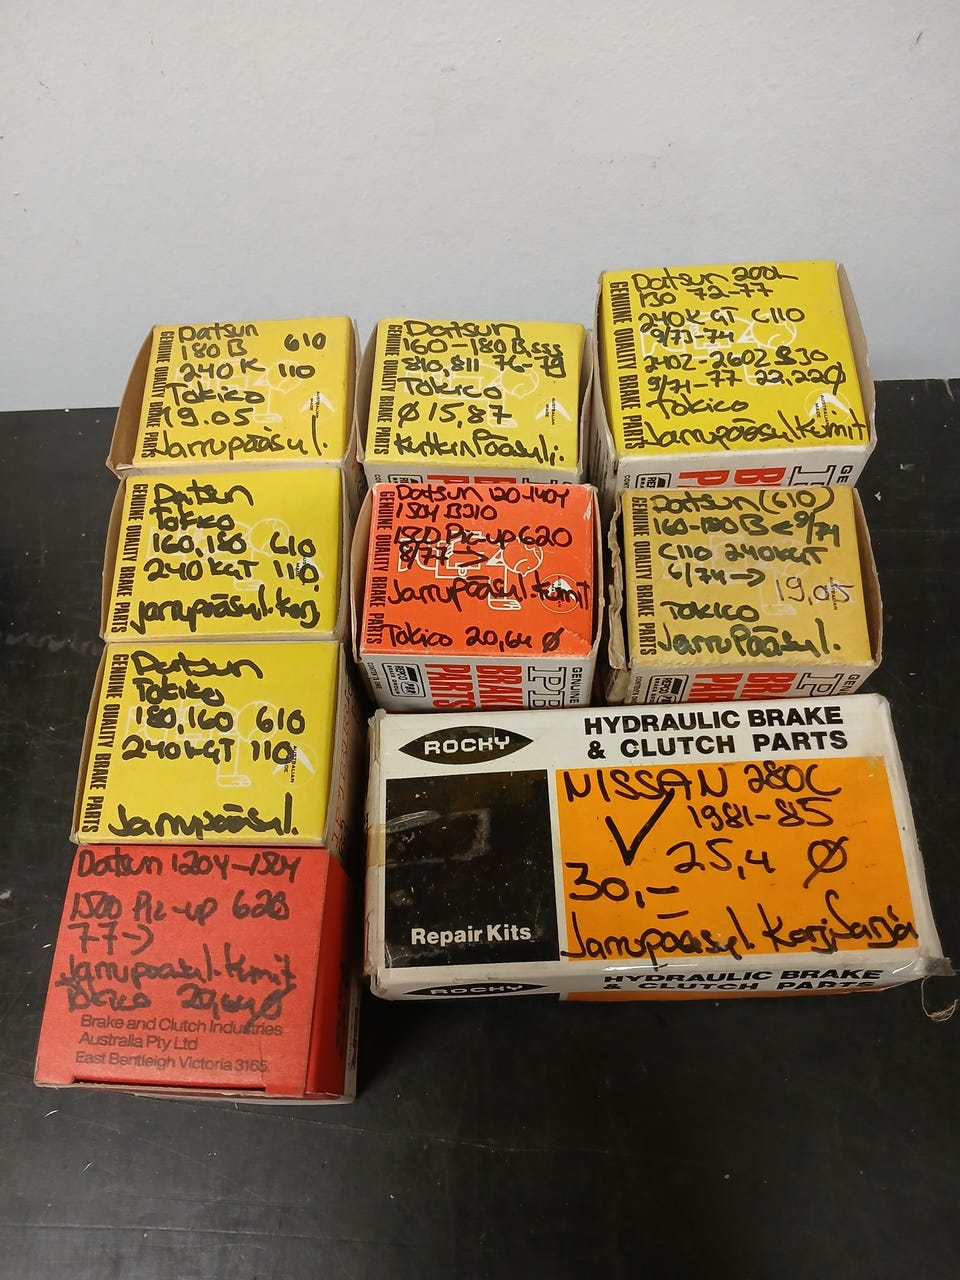 Datsun
180B 610
240K 110
Tokico
19.05
Jarrupääsyl.
GENUINE QUALITY BRAKE PARTS
Datsun
160-180B.SSS
810,811 76-79
Tokico
Ø 15,87
KytkinPääsyli.
GENUINE QUALITY BRAKE PARTS
Datsun 200L
130 72-77
240K GT C110
9/73-74
240Z-260Z S30
9/71-77 22,22Ø
Tokico
JarrupääsylKumit
GENUINE QUALITY BRAKE PARTS
Datsun
Tokico
160,180 610
240KGT 110
jarrupääsyl.korj.
GENUINE QUALITY BRAKE PARTS
Datsun 120-140Y
150Y B310
1500 Pic-up 620
8/77 →
Jarrupääsyl.kumit
Tokico 20,64 Ø
GENUINE QUALITY BRAKE PARTS
Datsun (610)
160-180B < 9/74
C110 240KGT
6/74 →
19,05
Tokico
JarruPääsyl.
GENUINE QUALITY BRAKE PARTS
Datsun
Tokico
180,160 610
240KGT 110
Jarrupääsyl.
GENUINE QUALITY BRAKE PARTS
AUSTRALIAN MADE
ROCKY
HYDRAULIC BRAKE
& CLUTCH PARTS
NISSAN 280C
1981-85
25,4 Ø
30,-
Jarrupääsyl KorjSarja
Repair Kits
ROCKY
HYDRAULIC BRAKE
& CLUTCH PARTS
Datsun 120Y-150Y
1500 Pic-up 620
77->
Jarrupääsyl.Kumit
Tokico 20,64Ø
Brake and Clutch Industries
Australia Pty Ltd
East Bentleigh Victoria 3165